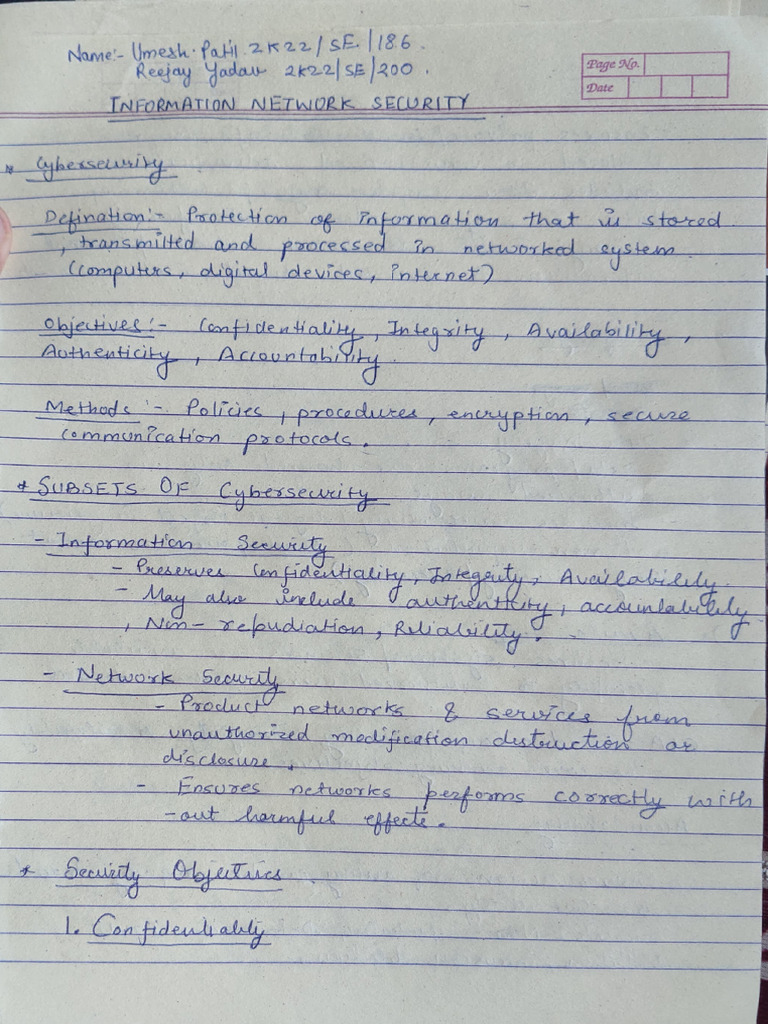 Name:- Umesh. Patil 2K22/SE/186.
Reejay Yadav 2K22/SE/200.
Page No.
Date
INFORMATION NETWORK SECURITY
* Cybersecurity
Defination:- Protection of information that is stored
, transmitted and processed in networked system
(computers, digital devices, internet)
Objectives:- Confidentiality, Integrity, Availability,
Authenticity, Accountability.
Methods:- Policies, procedures, encryption, secure
communication protocols.
* SUBSETS OF Cybersecurity
- Information Security
- Preserves Confidentiality, Integrity, Availability.
- May also include authenticity, accountability
, Non-repudiation, Reliability.
- Network Security
- Product networks & services from
unauthorized modification distruction or
disclosure.
- Ensures networks performs correctly with
-out harmful effects.
* Security Objectives
1. Confidentiality